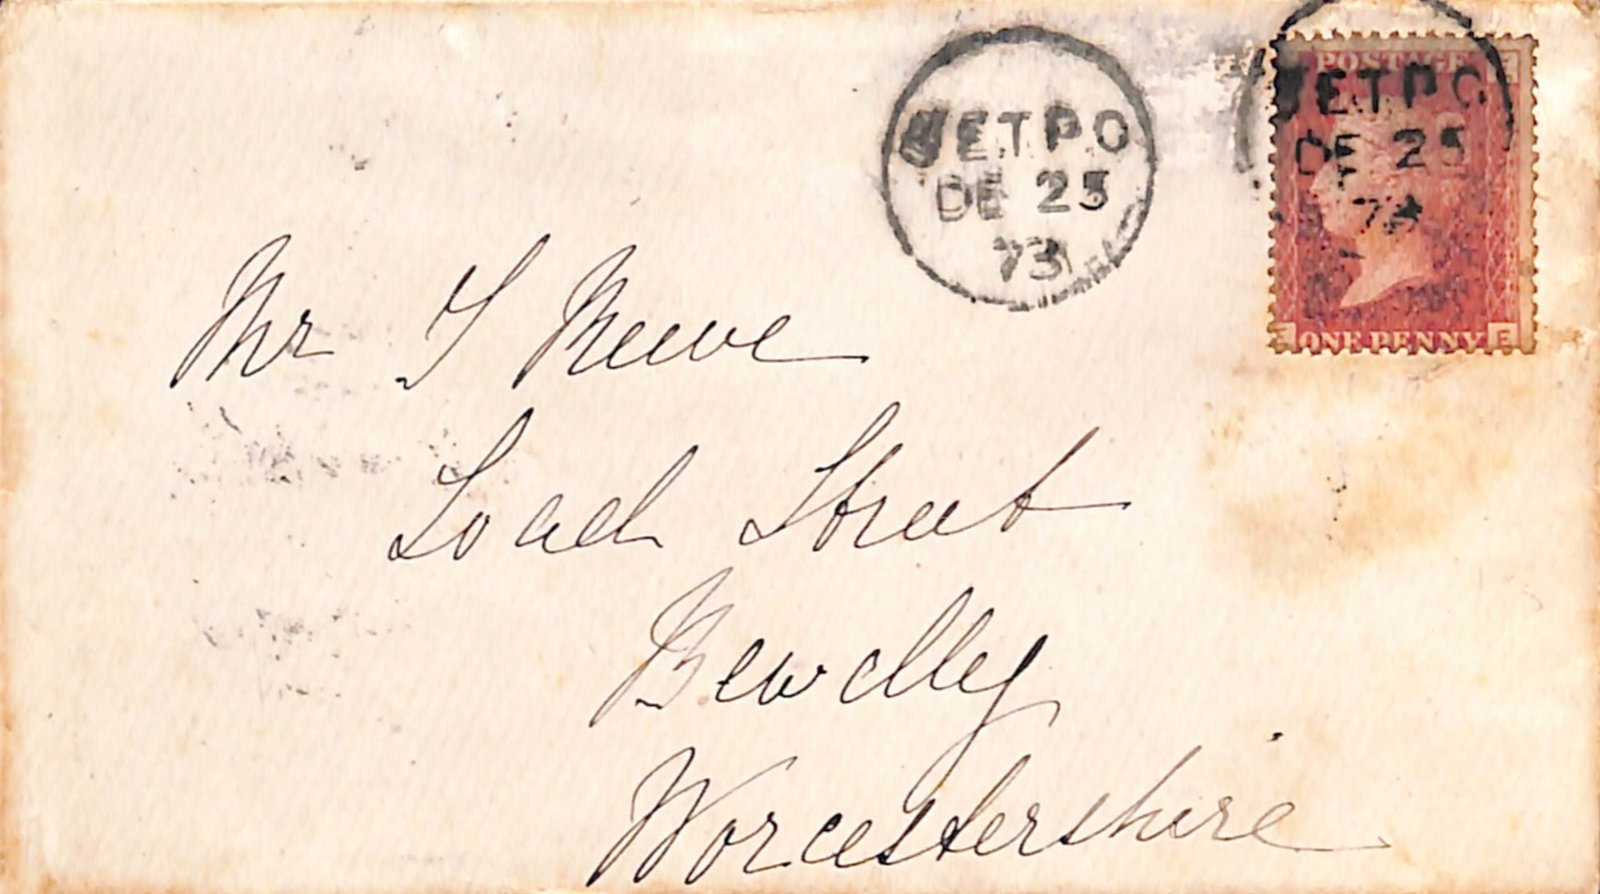 WETPO
DE 25
73
POSTAGE
WETPO
DE 25
73
ONE PENNY E
Mr
Load Street
Bewdley
Worcestershire